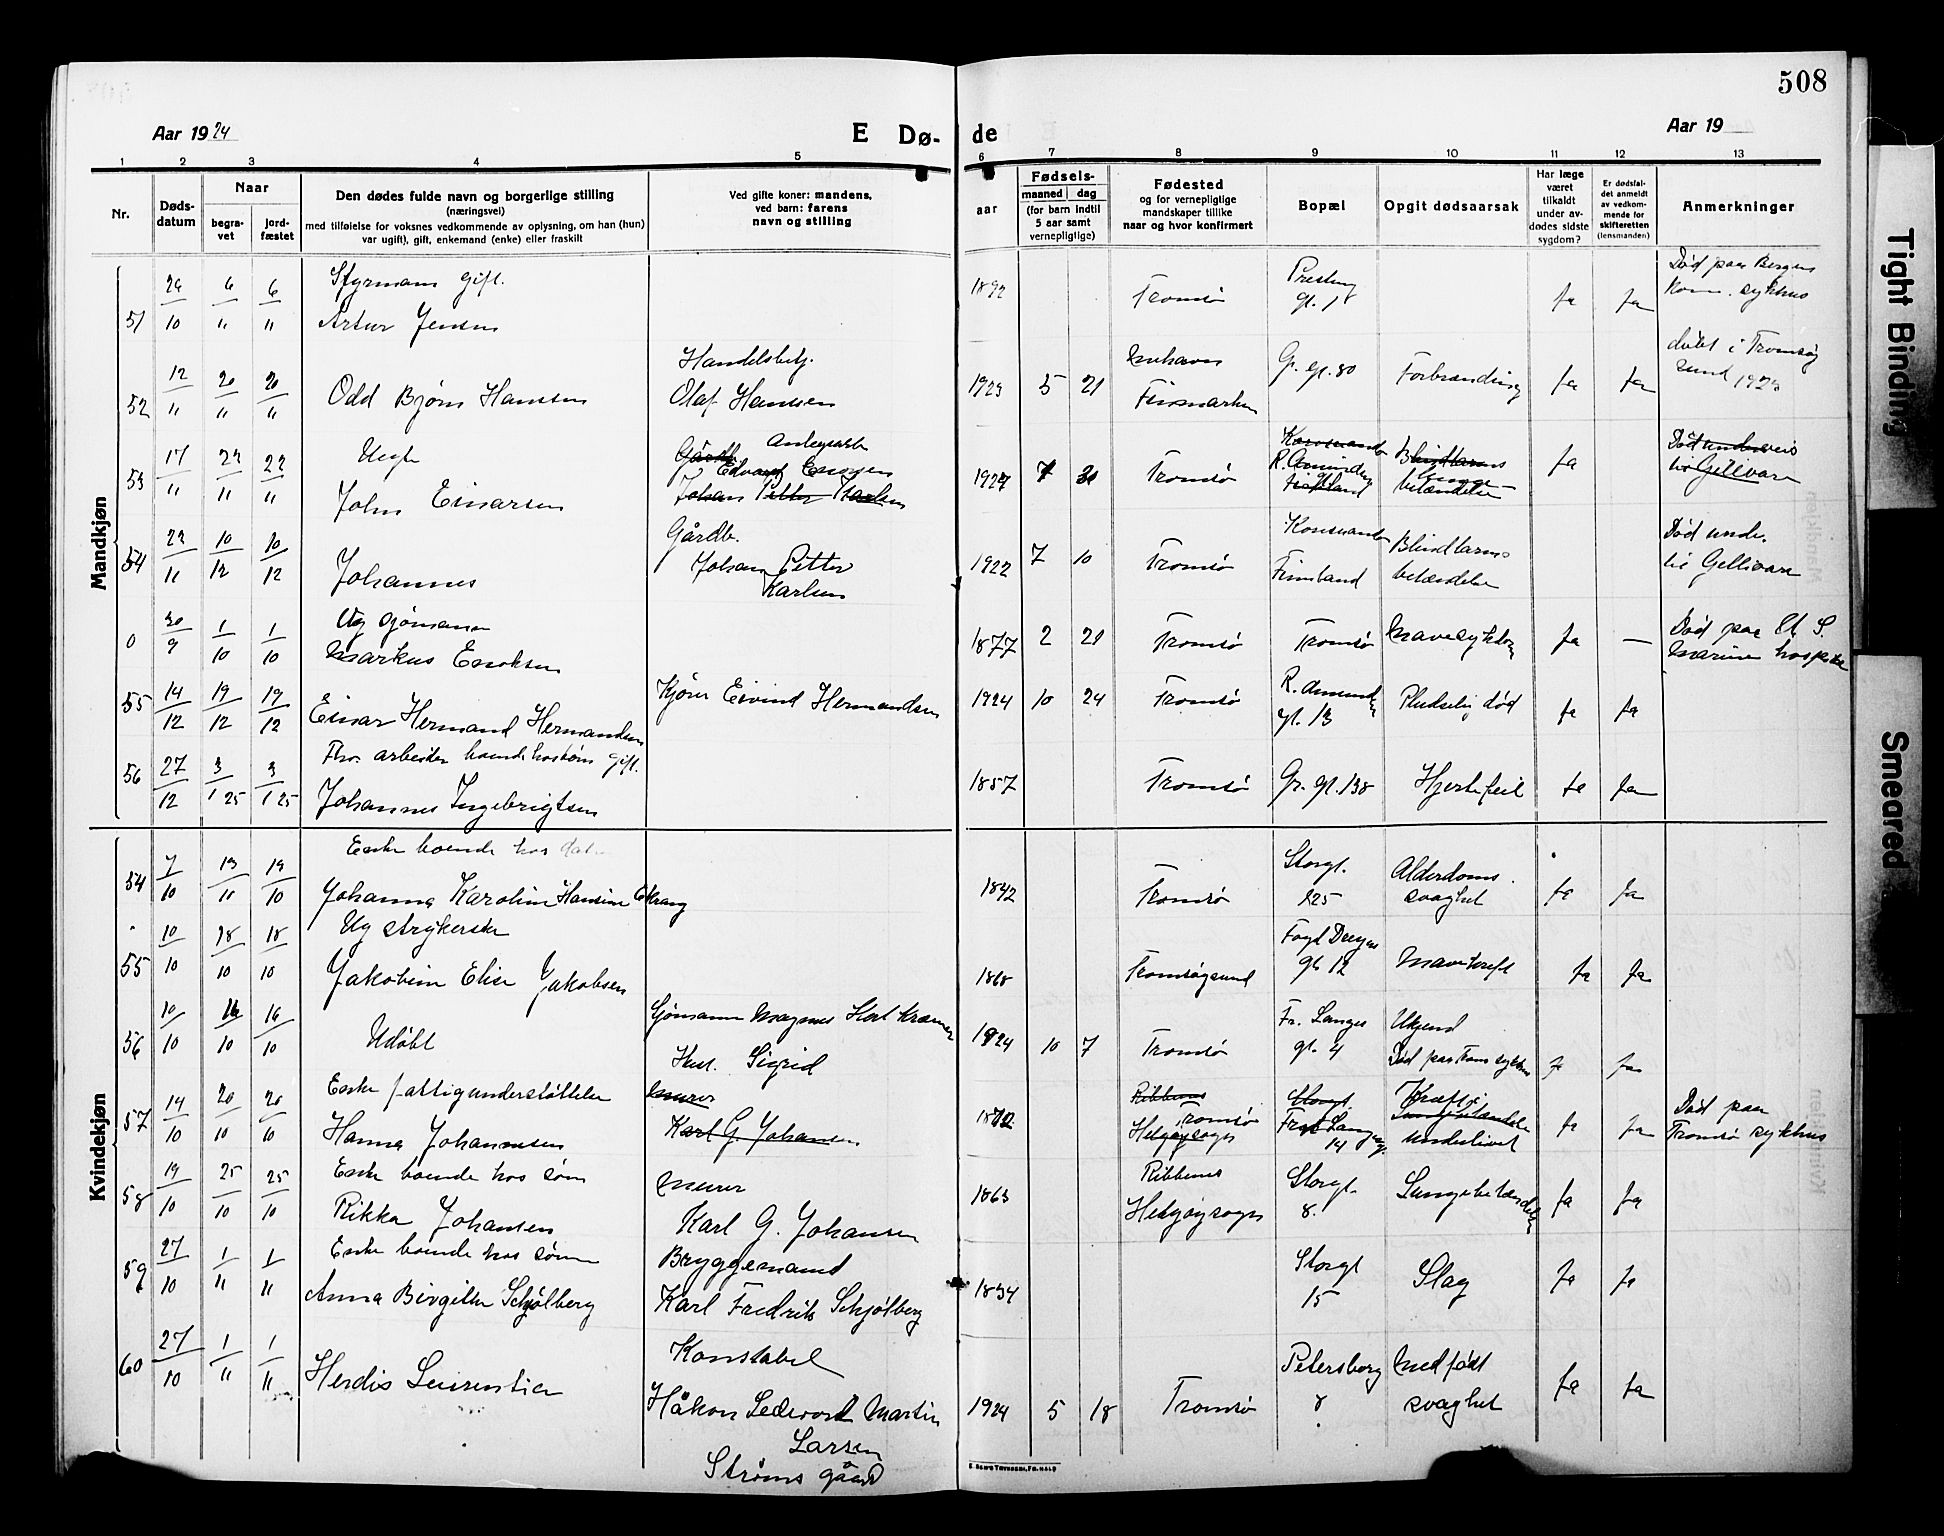 508
Aar 1924
E Dø-
de
Aar 19
1 2 3 4 5 6 7 8 9 10 11 12 13
Nr.
Døds-
datum
Naar
begra-
vet
jord-
fæstet
Den dødes fulde navn og borgerlige stilling
(næringsvei)
med tilføielse for voksnes vedkommende av oplysning, om han (hun)
var ugift), gift, enkemand (enke) eller fraskilt
Ved gifte koner: mandens,
ved barn: farens
navn og stilling
aar
Fødsels-
maaned dag
(for barn indtil
5 aar samt
vernepligtige)
Fødested
og for vernepligtige
mandskaper tillike
naar og hvor konfirmert
Bopæl
Opgit dødsaarsak
Har læge
været
tilkaldt
under av-
dødes sidste
sygdom?
Er dødsfal-
det anmeldt
av vedkom-
mende for
skifteretten
(lensmanden)
Anmerkninger
Mandkjøn
51 10 6 " 6 "
Styrmann gift.
Artur Jensen
1892 Tromsø
gt. 18
ja ja
Død paa Bergens
Kom. sykhus
52 12 " 20 " 20 "
Odd Bjørn Hansen
Handelsbetj.
Olaf Hansen
1923 5 21
Finmarken
Gr. gt. 80
Forbrænding
ja ja
døbt i Tromsøy
sund 1923
53 17 " 22 " 22 "
John Einarsen
Johan Petter Karlsen
7
Tromsø
Blindtarms
betændelse
ja
Gellivare
54 22 11 10 12 10 12
Johannes
Gårdb.
Johan Petter
Karlsen
1922 7 10
Tromsø
Finnland
Blindtarms
betændelse
Død unde.
Gellivare
0 30 9 1 10 1 10
Ug sjømann
Markus Enoksen
1877 2 21
Tromsø
Tromsø
Mavesykdom
ja —
Død paa U S.
Marine hospital
55 14 12 19 12 19 12
Einar Hermand Hermandsen
Kjører Eivind Hermandsen
1924 10 24
Tromsø
R. Amunds
gt. 13
Pludselig død
ja ja
56 27 12 3 1 25 3 1 25
Fhv. arbeider boende hos søn gift.
Johannes Ingebrigtsen
1857
Tromsø
Gr. gt. 138
Hjertefeil
ja ja
Kvindekjøn
54 7 10 13 11 19 10
Enke boende hos dat.
Johanna Karoline Hansine
1842
Tromsø
Storgt.
125
Alderdoms
svaghet
ja ja
55 10 10 18 10 18 10
Ug strykerske
Jakobine Elise Jakobsen
1868
Tromsøysund
Fogd Dreyers
gt 12
Mavekreft
ja ja
56 10 10 16 10 16 10
Udøbt
Sjømann Magnus Karl Kræmer
Hust. Sigrid
1924 10 7
Tromsø
Fr. Langes
gt. 4
Ukjend
Død paa Toms sykhus
ja ja
57 14 10 20 10 20 10
Enke fattigunderstøttelse
Hanna Johannesen
Murer
Karl G. Johansen
Ribbenes
Tromsø
Helgøysogn
Storgt
14
Kræft i
Lungebetændelse
Underlivet
ja ja
Død paa
Tromsø sykhus
58 19 10 25 10 25 10
Enke boende hos søn
Rikka Johansen
Murer
Karl G. Johansen
1863
Ribbenes
Helgøysogn
Storgt.
8.
Lungebetændelse
ja ja
59 27 10 1 11 1 11
Enke boende hos søn
Anna Birgitte Schjølberg
Bryggemand
Karl Fredrik Schjølberg
1834
Storgt
15
Slag
ja ja
60 27 10 1 11 1 11
Herdis Laurentia
Konstabel
Håkon Martin
Larsen
Strømsgård
1924 5 18
Tromsø
Petersborg
8
Medfødt
svaghet
ja ja
Tight Binding
Smeared